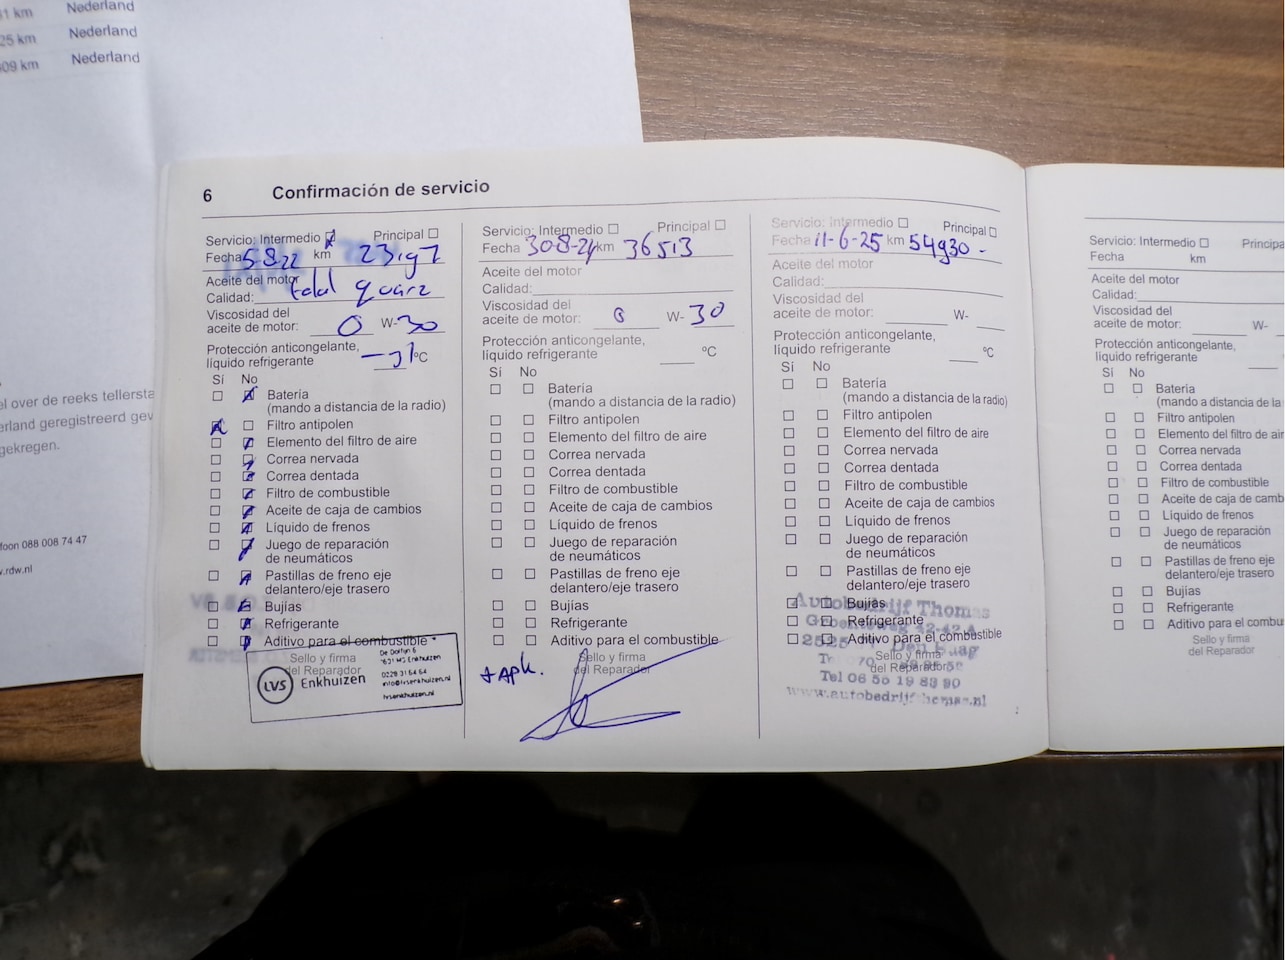 1 km Nederland
25 km Nederland
609 km Nederland
el over de reeks tellersta
erland geregistreerd gev
gekregen.
foon 088 008 74 47
.rdw.nl
6 Confirmación de servicio
Servicio: Intermedio Principal
Fecha 5-8-22 km 23197
Aceite del motor
Calidad: total quarz
Viscosidad del
aceite de motor: 0 W-30
Protección anticongelante,
líquido refrigerante -31 ºC
Sí No
Batería
(mando a distancia de la radio)
Filtro antipolen
Elemento del filtro de aire
Correa nervada
Correa dentada
Filtro de combustible
Aceite de caja de cambios
Líquido de frenos
Juego de reparación
de neumáticos
Pastillas de freno eje
delantero/eje trasero
Bujías
Refrigerante
Aditivo para el combustible *
Sello y firma
del Reparador
LVS Enkhuizen
1601 MS Enkhuizen
0228 31 54 54
info@lvsenkhuizen.nl
lvsenkhuizen.nl
Servicio: Intermedio Principal
Fecha 30-8-24 km 36513
Aceite del motor
Calidad:
Viscosidad del
aceite de motor: 0 W- 30
Protección anticongelante,
líquido refrigerante ºC
Sí No
Batería
(mando a distancia de la radio)
Filtro antipolen
Elemento del filtro de aire
Correa nervada
Correa dentada
Filtro de combustible
Aceite de caja de cambios
Líquido de frenos
Juego de reparación
de neumáticos
Pastillas de freno eje
delantero/eje trasero
Bujías
Refrigerante
Aditivo para el combustible
Sello y firma
del Reparador
+ Apk.
Servicio: Intermedio Principal
Fecha 11-6-25 km 54930 -
Aceite del motor
Calidad:
Viscosidad del
aceite de motor: W-
Protección anticongelante,
líquido refrigerante ºC
Sí No
Batería
(mando a distancia de la radio)
Filtro antipolen
Elemento del filtro de aire
Correa nervada
Correa dentada
Filtro de combustible
Aceite de caja de cambios
Líquido de frenos
Juego de reparación
de neumáticos
Pastillas de freno eje
delantero/eje trasero
Bujías
Refrigerante
Aditivo para el combustible
Sello y firma
del Reparador
Autobedrijf Thomas
42-42A
Den Haag
Tel 06 55 19 83 90
www.autobedrijfthomas.nl
Servicio: Intermedio Principa
Fecha km
Aceite del motor
Calidad:
Viscosidad del
aceite de motor: W-
Protección anticongelante,
líquido refrigerante
Sí No
Batería
(mando a distancia de la
Filtro antipolen
Elemento del filtro de air
Correa nervada
Correa dentada
Filtro de combustible
Aceite de caja de camb
Líquido de frenos
Juego de reparación
de neumáticos
Pastillas de freno eje
delantero/eje trasero
Bujías
Refrigerante
Aditivo para el combu
Sello y firma
del Reparador